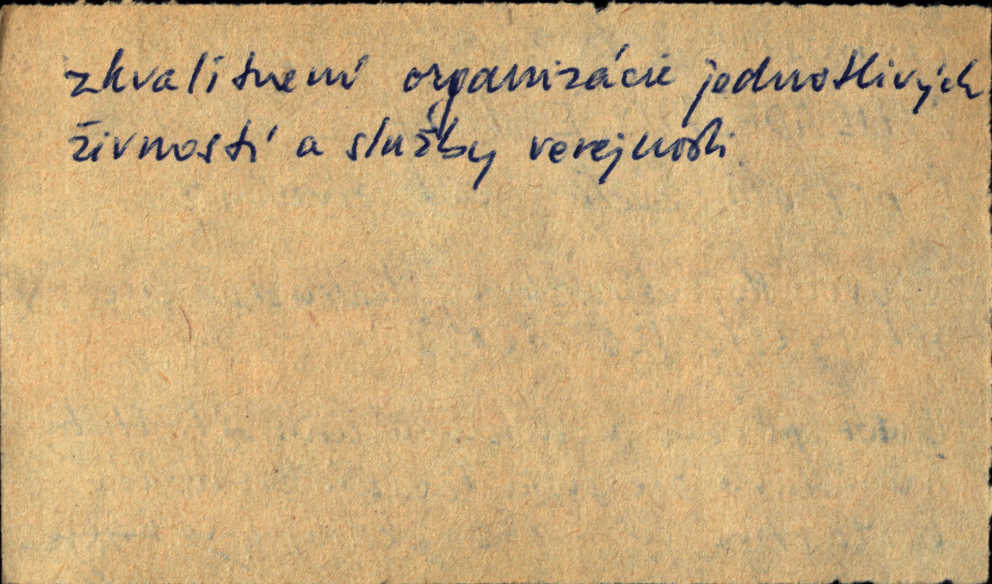 zkvalitnení organizácie jednotlivých
živností a služby verejnosti.